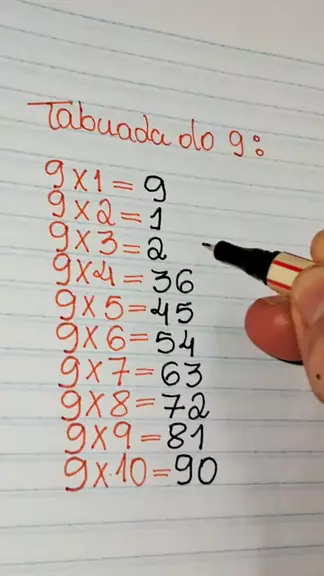 Tabuada do 9:
9x1=9
9x2=1
9x3=2
9x4=36
9x5=45
9x6=54
9x7=63
9x8=72
9x9=81
9x10=90